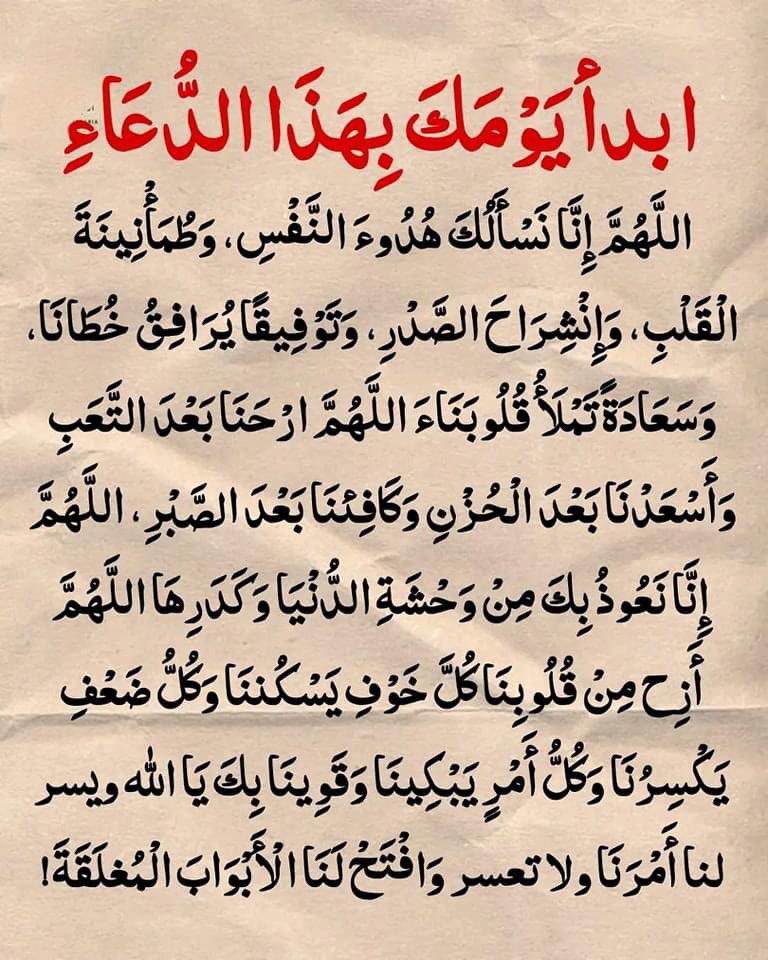 ابدأ يَوْمَكَ بِهَذَا الدُّعَاءِ
اللَّهُمَّ إِنَّا نَسْأَلُكَ هُدُوءَ النَّفْسِ، وَطُمَأْنِينَةَ
الْقَلْبِ، وَإِنْشِرَاحَ الصَّدْرِ، وَتَوْفِيقًا يُرَافِقُ خُطَانَا،
وَسَعَادَةً تَمْلَأُ قُلُوبَنَاءَ اللَّهُمَّ ارْحَنَا بَعْدَ التَّعَبِ
وَأَسْعَدْنَا بَعْدَ الْحُزْنِ وَكَافِئْنَا بَعْدَ الصَّبْرِ، اللَّهُمَّ
إِنَّا نَعُوذُ بِكَ مِنْ وَحْشَةِ الدُّنْيَا وَكَدَرِهَا اللَّهُمَّ
أَزِح مِنْ قُلُوبِنَا كُلَّ خَوْفِ يَسْكُننَا وَكُلُّ ضَعْفِ
يَكْسِرُنَا وَكُلُّ أَمْرٍ يَبْكِينَا وَقَوِينَا بِكَ يَا الله ويسر
لنا أَمْرَنَا ولا تعسر وَافْتَحْ لَنَا الْأَبْوَابَ الْمُغلَقَةَ!